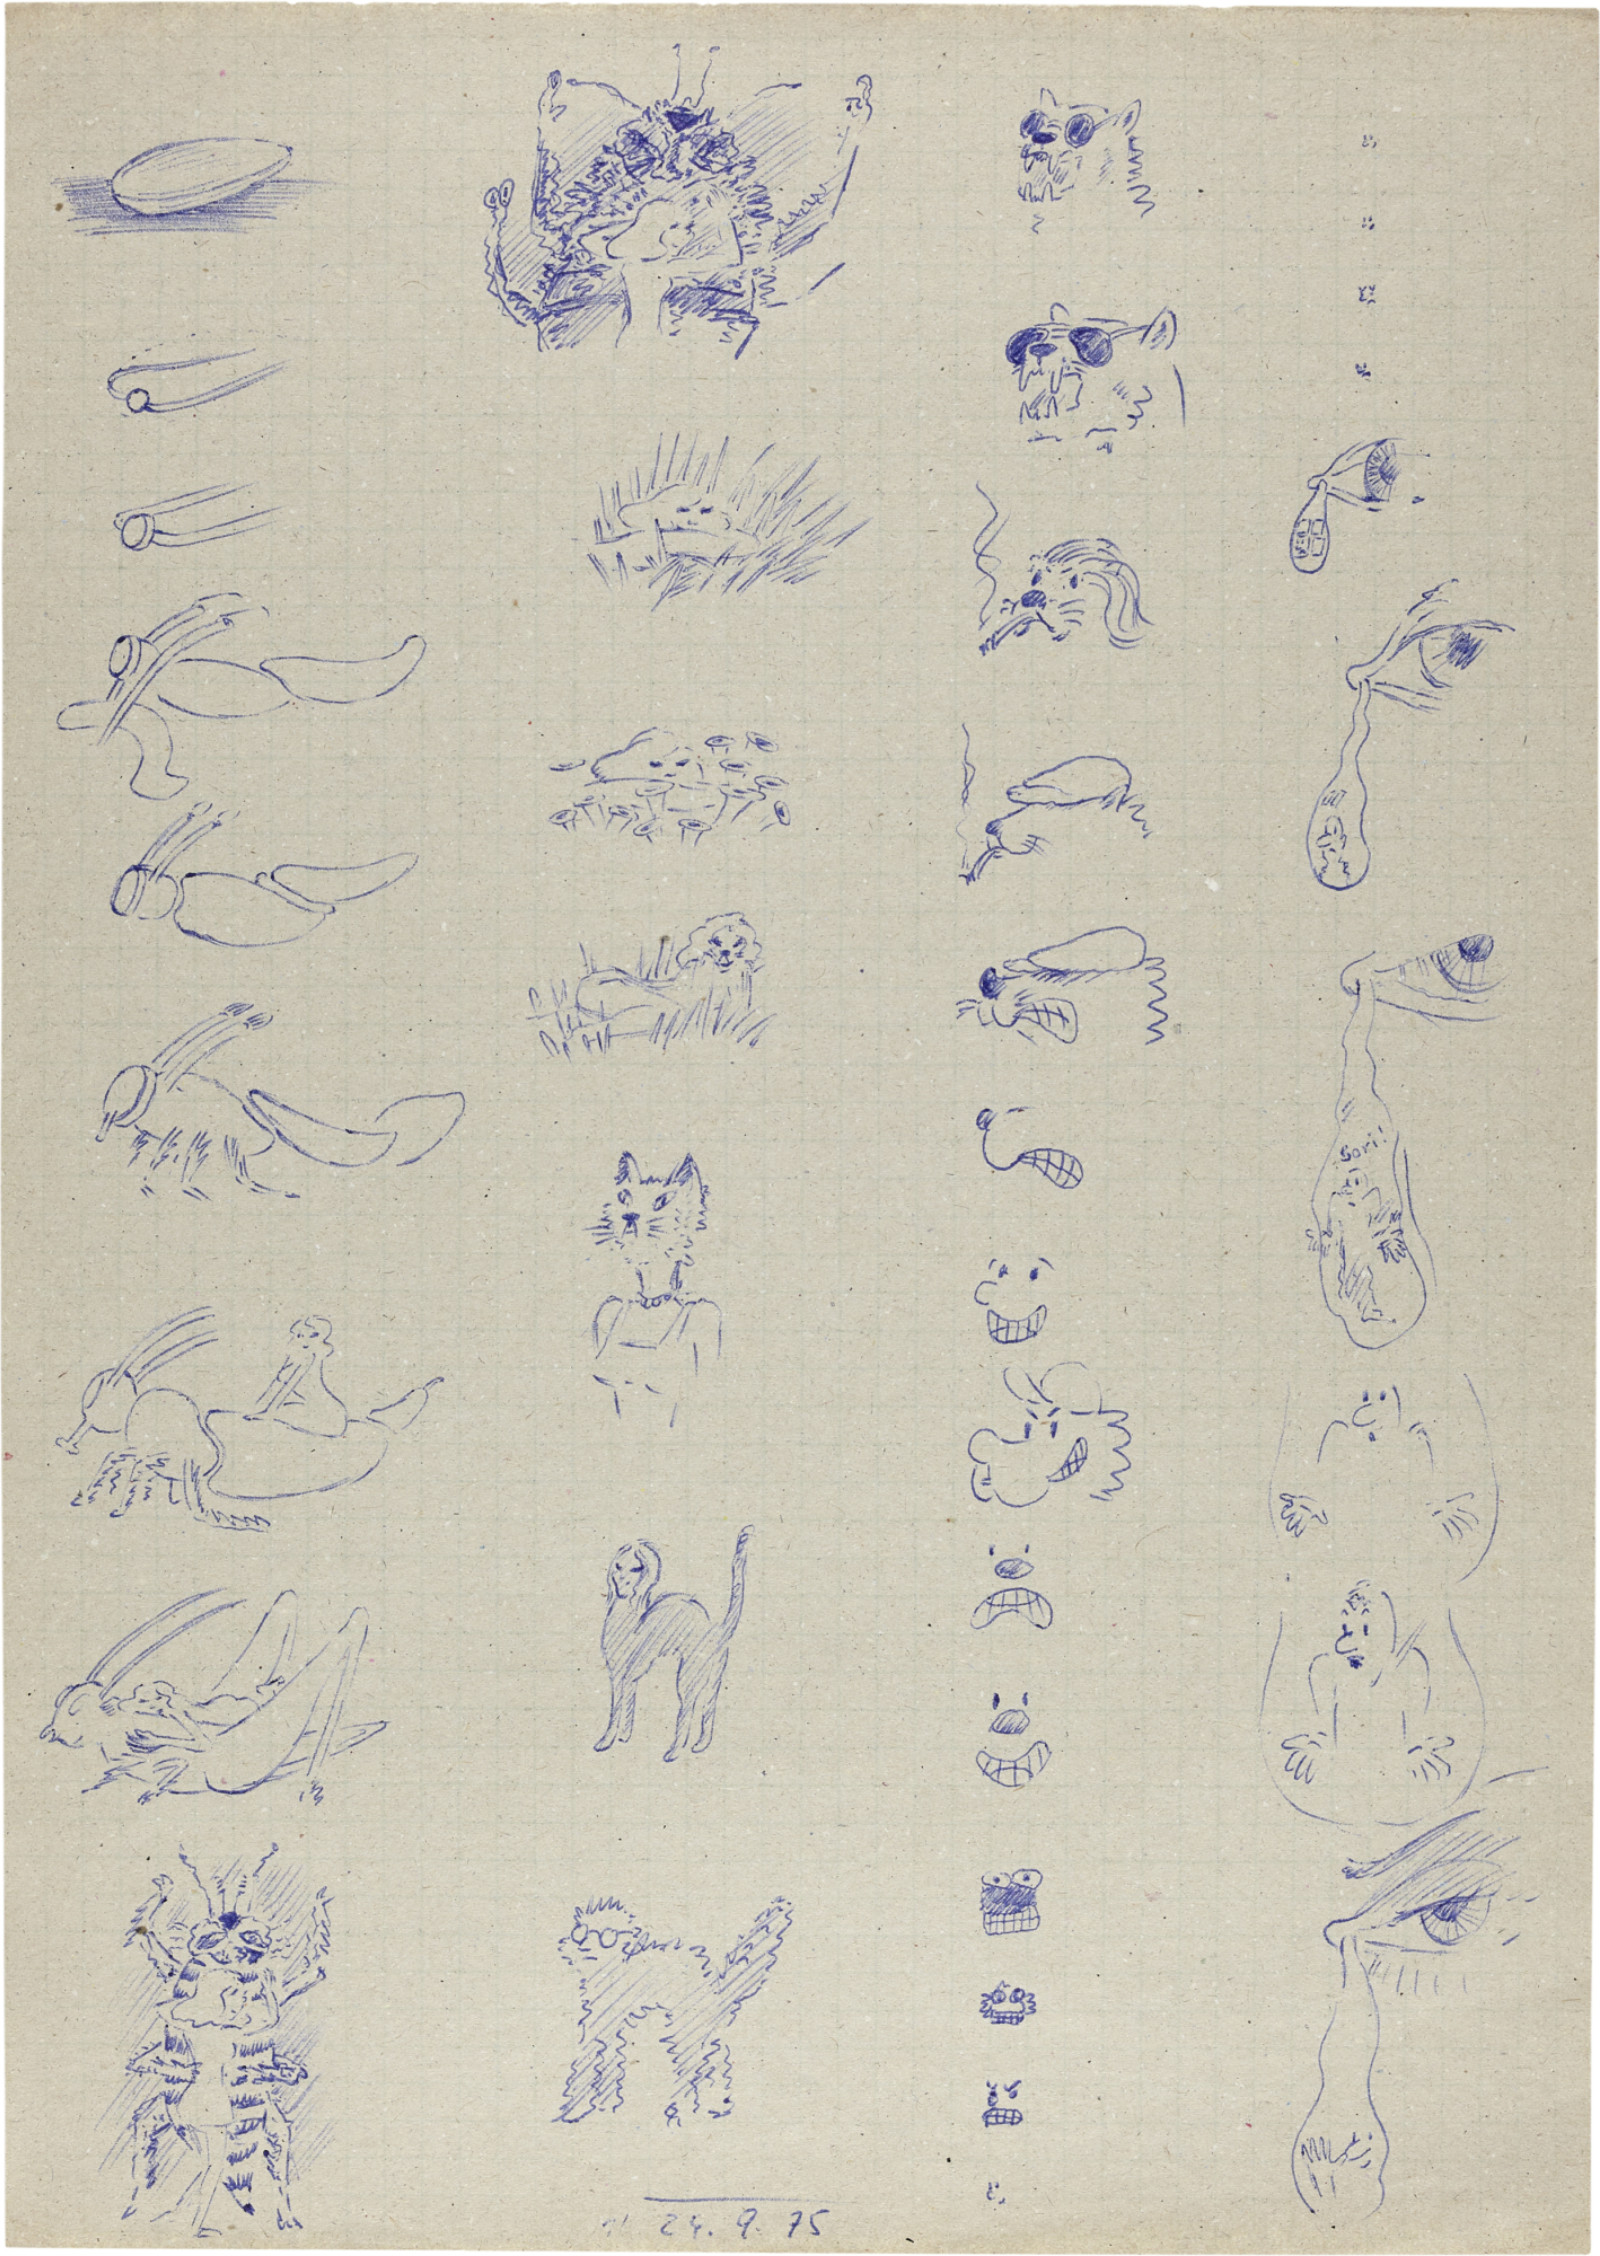 Sori!
24. 9. 75